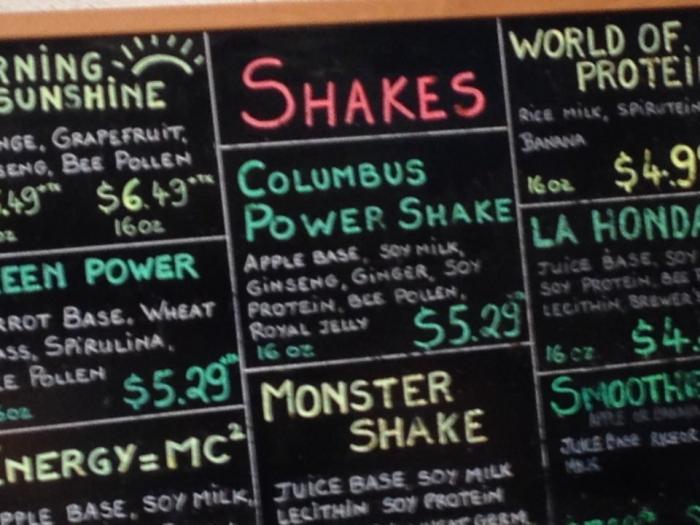 SUNSHINE
GRAPEFRUIT,
BEE POLLEN
$6.49+TX
16oz
POWER
BASE, WHEAT
SPIRULINA,
POLLEN
$5.29+TX
=MC²
BASE, SOY MILK,
SHAKES
COLUMBUS
POWER SHAKE
APPLE BASE, SOY MILK,
GINSENG, GINGER, SOY
PROTEIN, BEE POLLEN,
ROYAL JELLY
$5.29
16 oz
MONSTER
SHAKE
JUICE BASE, SOY MILK
LECITHIN SOY PROTEIN
WORLD OF
PROTEI
RICE MILK, SPIRUTEIN
BANANA
16oz $4.9
LA HONDA
JUICE BASE, SOY
SOY PROTEIN, BEE
LECITHIN, BREWER
16 oz $4.
SMOOTH
JUICE BASE
MILK